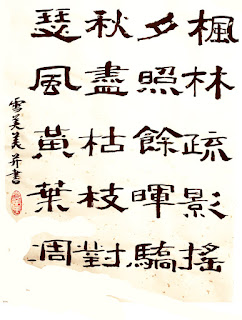 楓林疏影搖
夕照餘暉驕
秋盡枯枝對
瑟風黃葉凋
美美并書